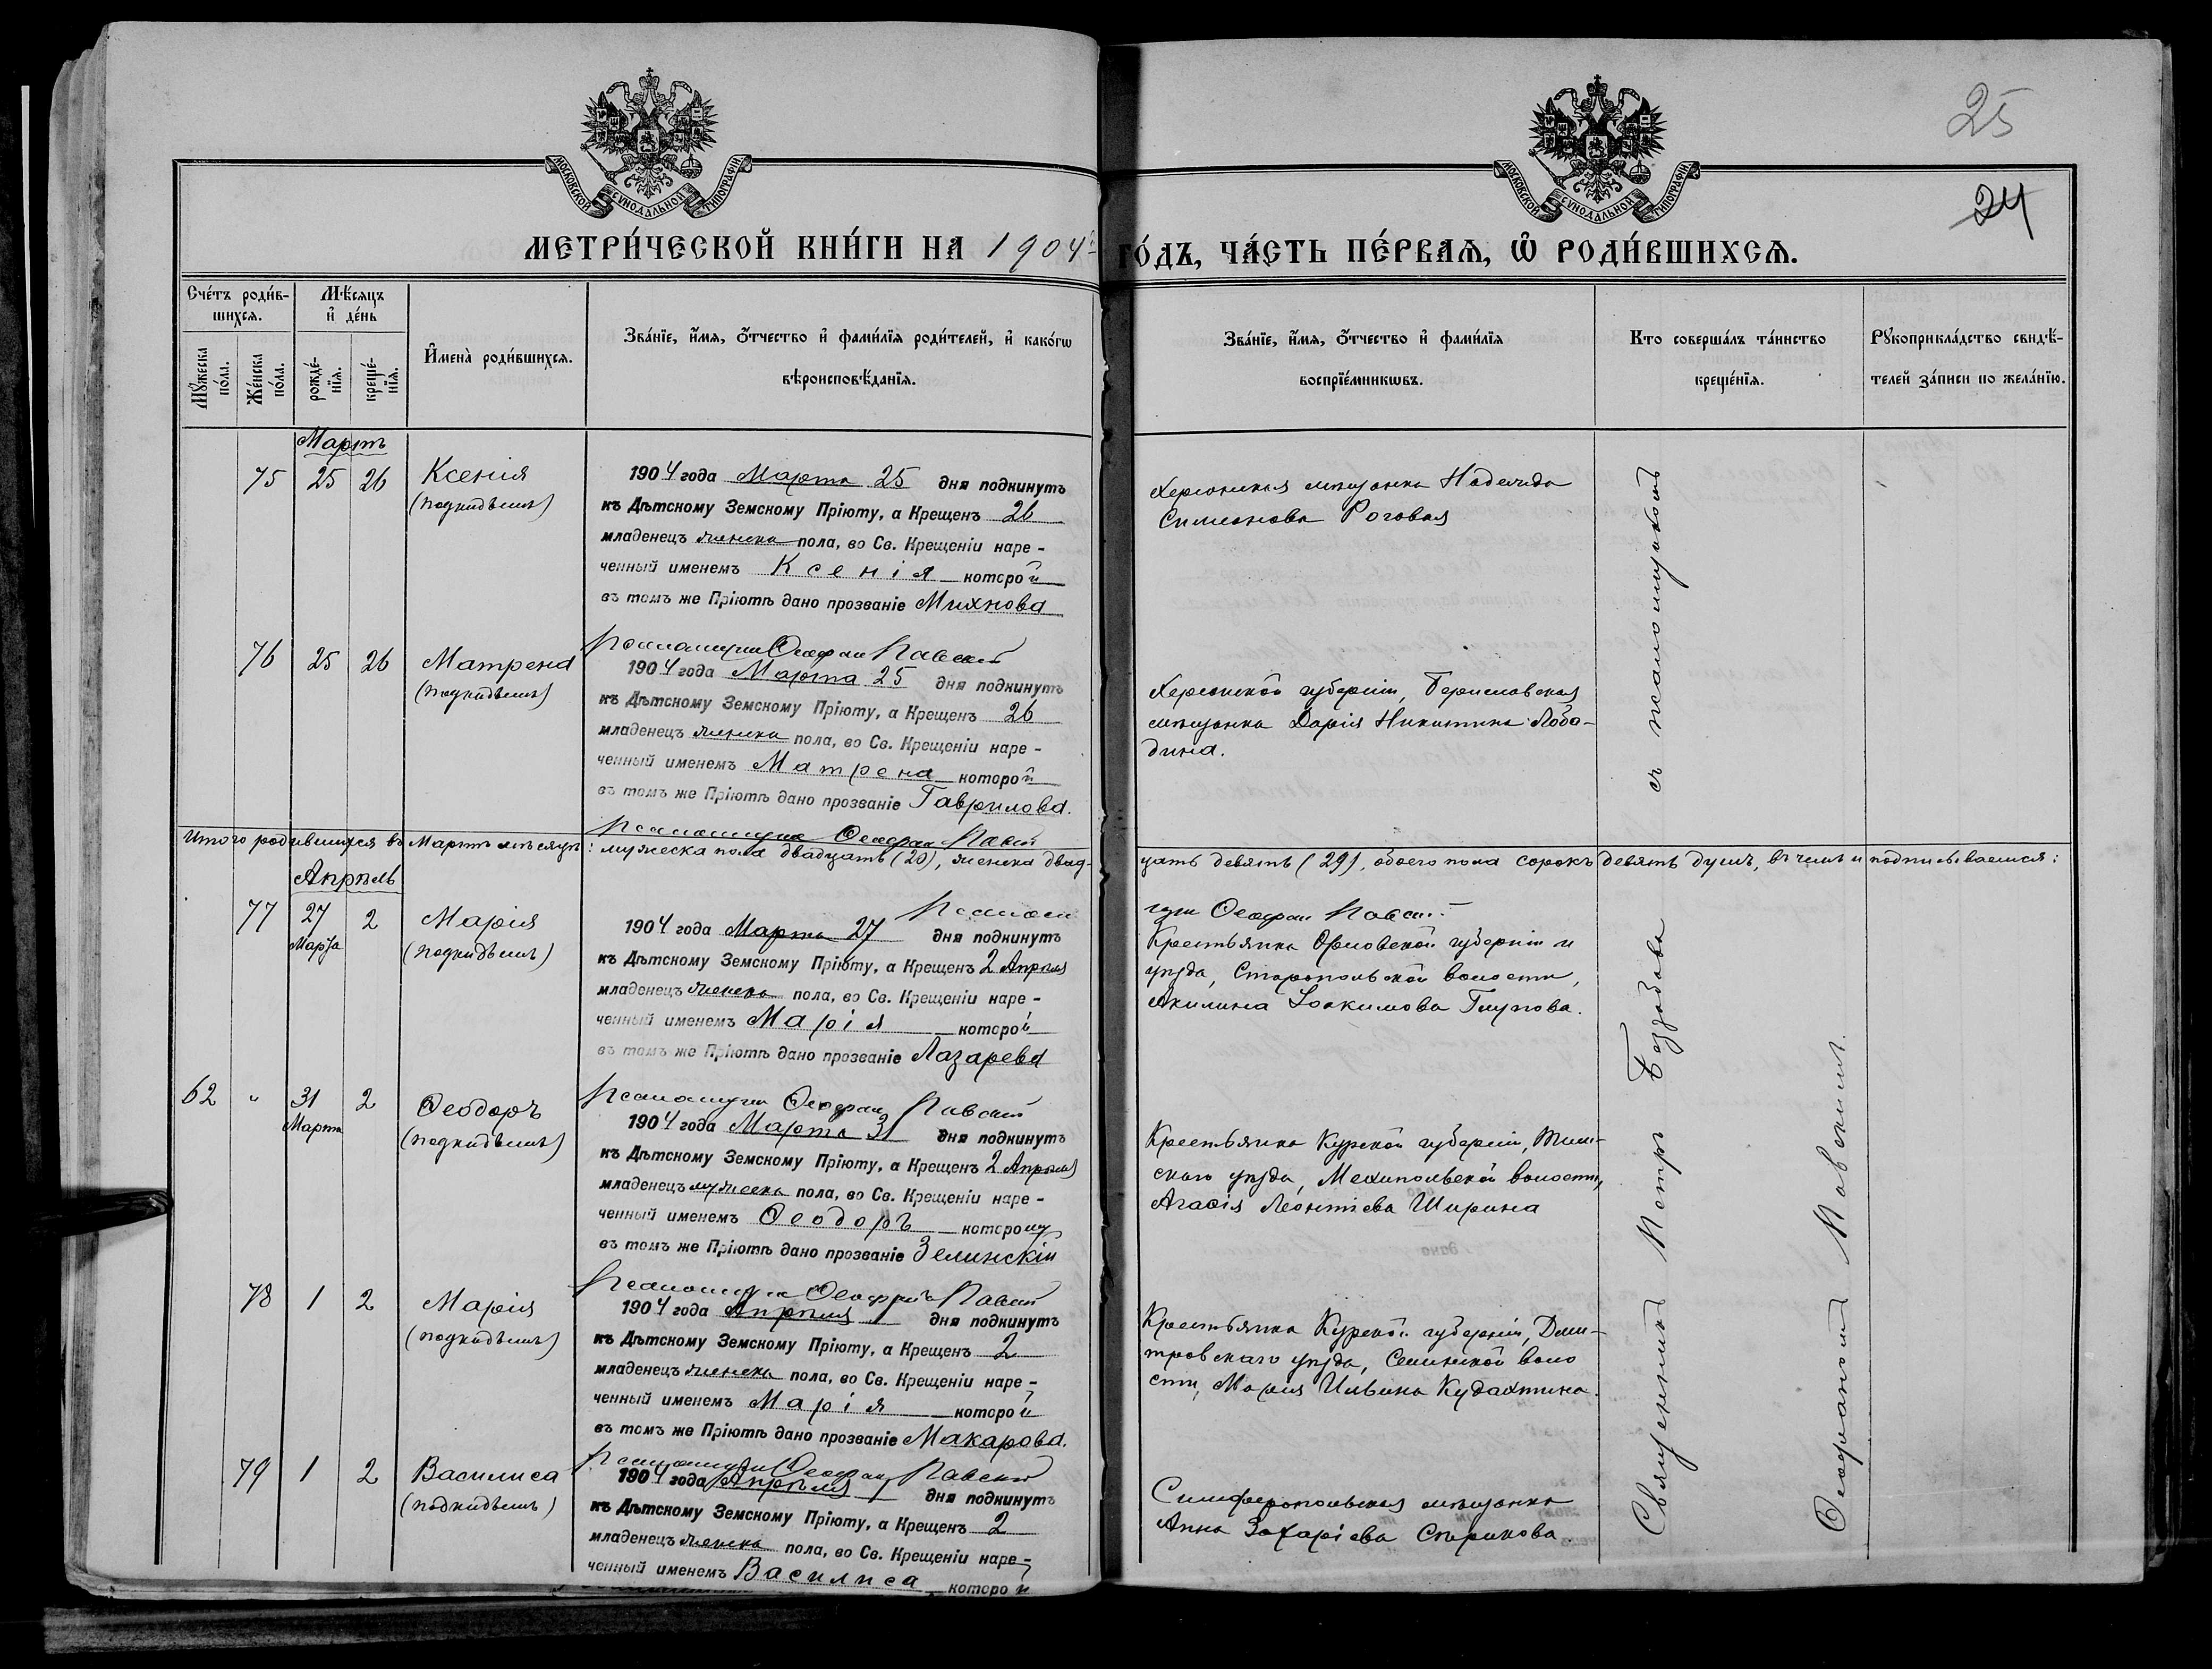 25
24
МОСКОВСКОЙ СѴНОДАЛЬНОЙ ТИПОГРАФІИ
МОСКОВСКОЙ СѴНОДАЛЬНОЙ ТИПОГРАФІИ
МЕТРИ́ЧЕСКОЙ КНИ́ГИ НА 1904 ГО́ДЪ, ЧА́СТЬ ПЕ́РВАѦ, Ѡ҆ РОДИ́ВШИХСѦ.
Сче́тъ роди́в-
шихсѧ.
Мꙋ́жеска по́ла.
Же́нска по́ла.
Мѣ́сяцъ
и҆ де́нь
рожде́-
нїѧ.
креще́-
нїѧ.
И҆мена̀ роди́вшихсѧ.
Зва́нїе, и҆́мѧ, ѻ҆́тчество и҆ фами́лїѧ роди́телей, и҆ како́гѡ
вѣроисповѣ́данїѧ.
Зва́нїе, и҆́мѧ, ѻ҆́тчество и҆ фами́лїѧ
воспрїе́мникѡвъ.
Кто соверша́лъ та́инство
креще́нїѧ.
Рꙋкоприкла́дство свидѣ́-
телей за́писи по жела́нїю.
Мартъ
75 25 26 Ксенія
(подкидышъ)
1904 года Марта 25 дня подкинутъ
къ Дѣтскому Земскому Пріюту, а Крещенъ 26
младенецъ женска пола, во Св. Крещеніи наре-
ченный именемъ Ксенія которой
въ томъ же Пріютѣ дано прозваніе Михнова
Херсонская мѣщанка Надежда
Симеонова Роговая
Псаломщикъ Ѳеофанъ Павскій
76 25 26 Матрена
(подкидышъ)
1904 года Марта 25 дня подкинутъ
къ Дѣтскому Земскому Пріюту, а Крещенъ 26
младенецъ женска пола, во Св. Крещеніи наре-
ченный именемъ Матрена которой
въ томъ же Пріютѣ дано прозваніе Гаврилова.
Херсонской губерніи, Бериславская
мѣщанка Дарія Никитина Лобо-
дина.
Псаломщикъ Ѳеофанъ Павскій
Итого родившихся въ Мартѣ мѣсяцѣ: мужеска пола двадцать (20), женска двад-
цать девять (29), обоего пола сорокъ девять душъ, въ чемъ и подписываемся:
Апрѣль
Псалом
щикъ Ѳеофанъ Павскій
77 27 Марта 2 Марія
(подкидышъ)
1904 года Марта 27 дня подкинутъ
къ Дѣтскому Земскому Пріюту, а Крещенъ 2 Апрѣля
младенецъ женска пола, во Св. Крещеніи наре-
ченный именемъ Марія которой
въ томъ же Пріютѣ дано прозваніе Лазарева
Крестьянка Орловской губерніи и
уѣзда, Старопольской волости,
Акилина Іоакимова Глупова.
Псаломщикъ Ѳеофанъ Павскій
62 " 31 Марта 2 Ѳеодоръ
(подкидышъ)
1904 года Марта 31 дня подкинутъ
къ Дѣтскому Земскому Пріюту, а Крещенъ 2 Апрѣля
младенецъ мужеска пола, во Св. Крещеніи наре-
ченный именемъ Ѳеодоръ которому
въ томъ же Пріютѣ дано прозваніе Зелинскій
Крестьянка Курской губерніи, Тим-
скаго уѣзда, волости,
Агаѳія Леонтіева Ширина
Псаломщикъ Ѳеофанъ Павскій
78 1 2 Марія
(подкидышъ)
1904 года Апрѣля 1 дня подкинутъ
къ Дѣтскому Земскому Пріюту, а Крещенъ 2
младенецъ женска пола, во Св. Крещеніи наре-
ченный именемъ Марія которой
въ томъ же Пріютѣ дано прозваніе Макарова.
Крестьянка Курской губерніи, Дми-
тровскаго уѣзда, воло
сти, Марія Ильина Кудахтина.
Псаломщикъ Ѳеофанъ Павскій
79 1 2 Василиса
(подкидышъ)
1904 года Апрѣля 1 дня подкинутъ
къ Дѣтскому Земскому Пріюту, а Крещенъ 2
младенецъ женска пола, во Св. Крещеніи наре-
ченный именемъ Василиса которой
Симферопольская мѣщанка
Анна Захаріева Старикова.
Священникъ Петръ Беззабава съ псаломщикомъ
Ѳеофаномъ Павскимъ.